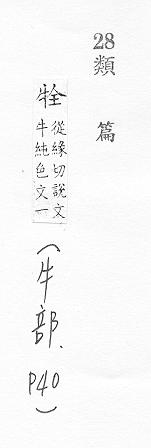 28類篇
牷
從緣切說文
牛純色文一
(牛部、P40)